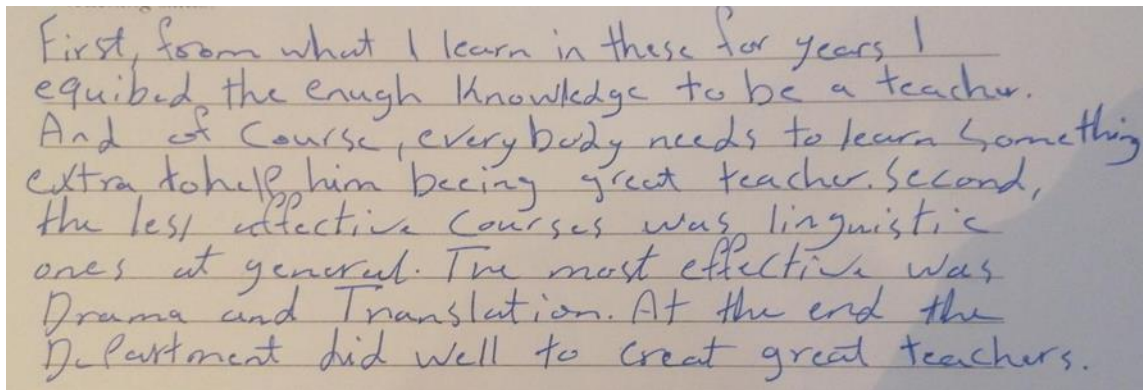 First, from what I learn in these for years I
equibed the enugh Knowledge to be a teacher.
And of Course, everybody needs to learn Something
extra to help him beeing great teacher. Second,
the less effective Courses was linguistic
ones at general. The most effective was
Drama and Translation. At the end the
Department did well to creat great teachers.